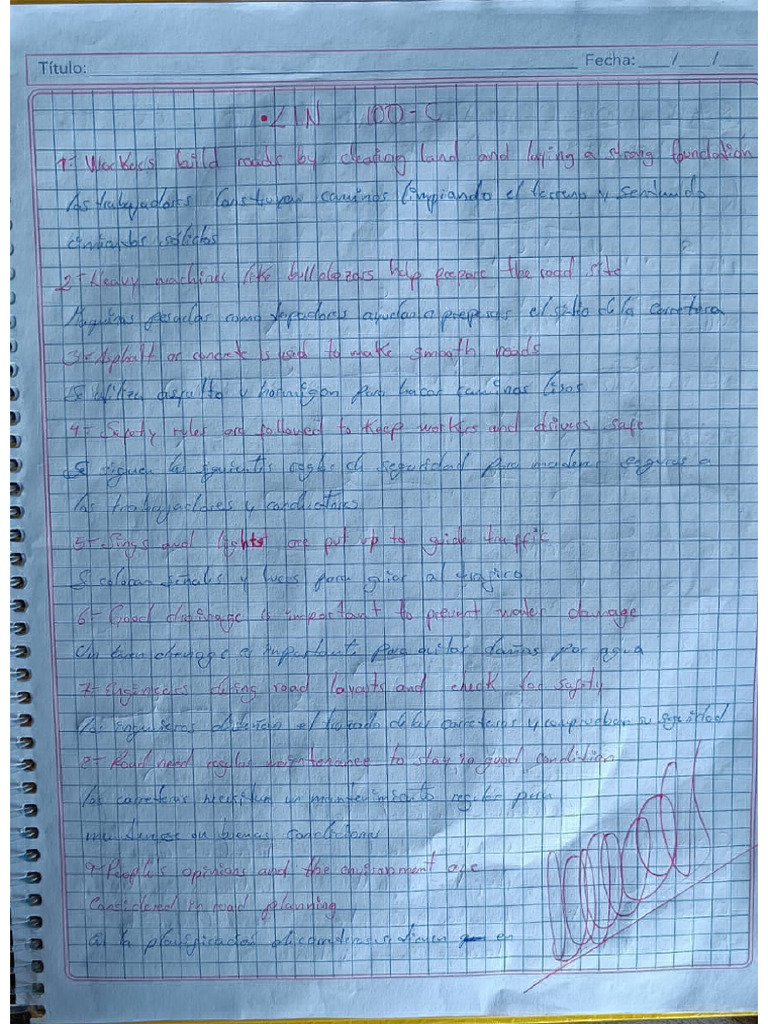 Título: Fecha: / /
• LIN 100-C
1- Workers bild roads by clearing land and laying a strong foundation
Los trabajadores construyen caminos limpiando el terreno y
solidos
2- Heavy machines like bulldozers help prepare the road site
Maquinas pesadas como ayudan a preparar el sitio de la carretera
3- Asphalt or concrete is used to make smooth roads
Se utiliza y hormigon para hacer caminos lisos
4- Safety rules are followed to keep workers and drivers safe
Se siguen las reglas de seguridad para a
los trabajadores y conductores
5- Sings and lights are put up to guide traffic
Se colocan señales y luces para giar al trafico
6- Good drainage is important to prevent water damage
Un buen es importante para daños por agua
7- Engineers road layouts and check for safety
Los ingenieros el trazado de las carreteras y comprueban su seguridad
8- Road need regular maintenance to stay in good condition
las carreteras necesitan un mantenimiento regular para
en buenas condiciones
9- People's opinions and the environment are
Considered in road planning
en